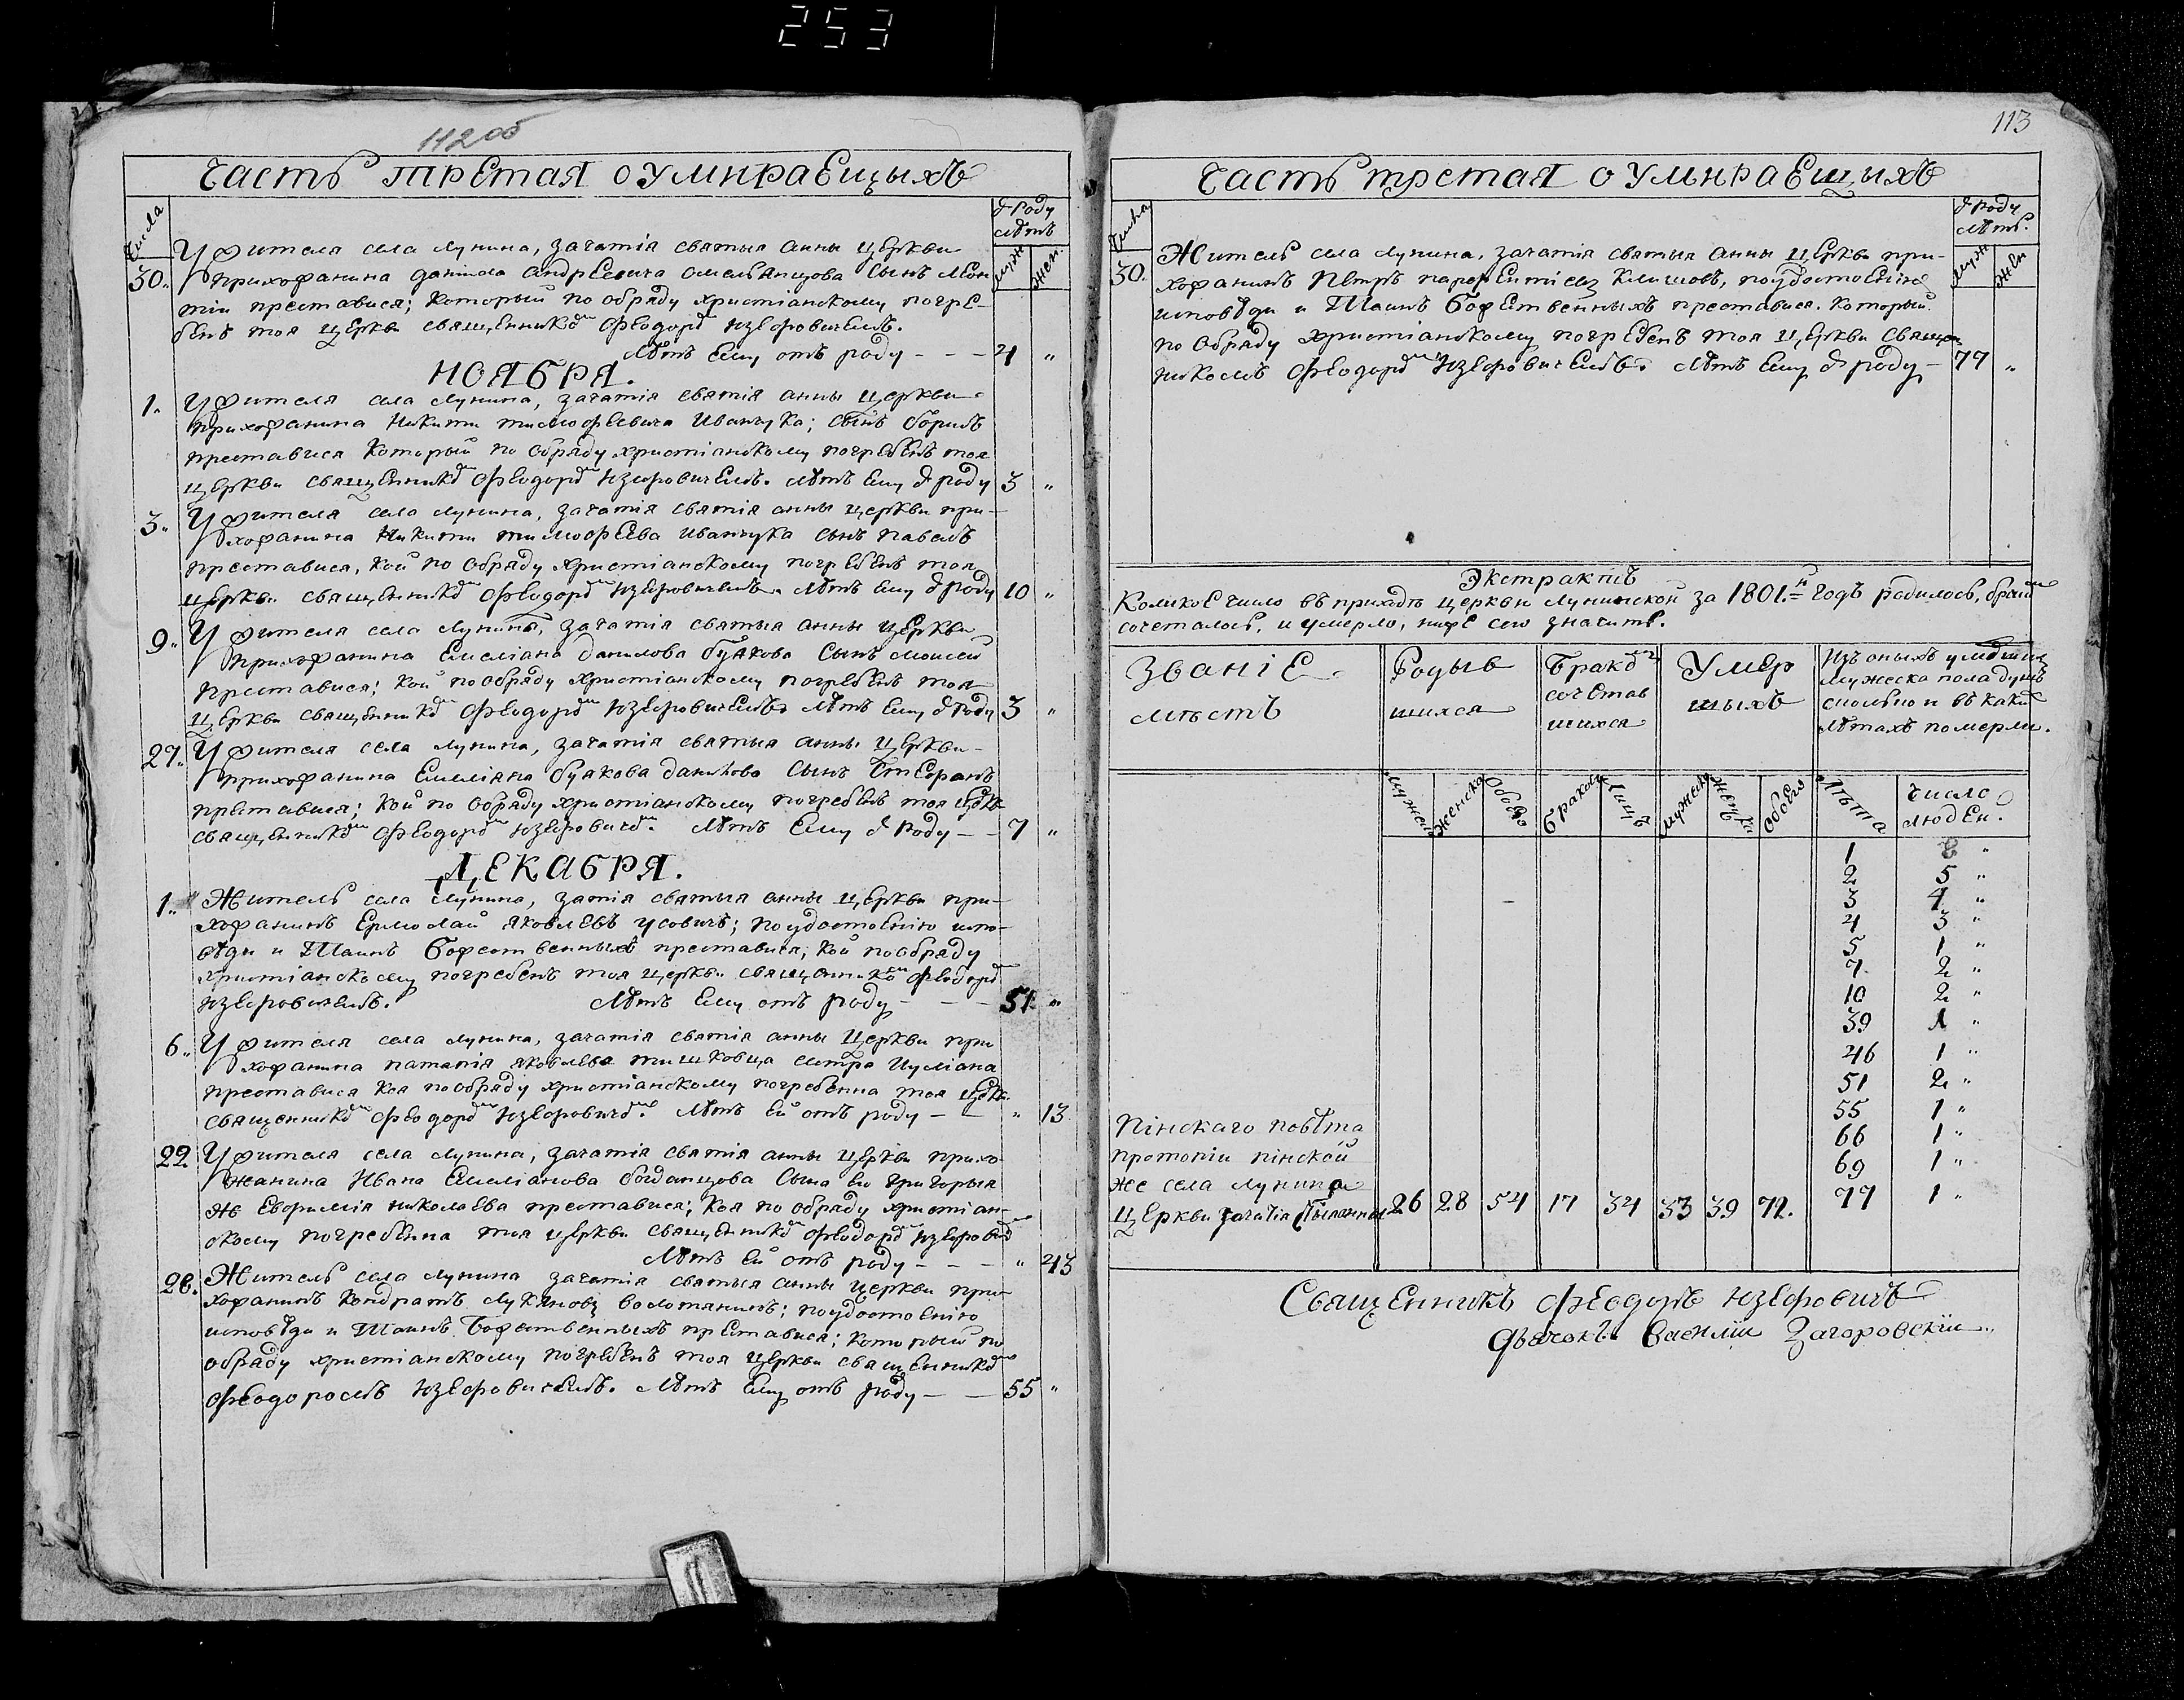 253
112 об
Часть третая о умираещыхъ
Числа
Ѿ роду лѣтъ
муж
жен.
30. У жителя села Лунина, зачатія святыя анны церкви
прихожанина данила андреевича омельянцова сынъ леон
тій преставися; который по обряду христіанскому погре-
бенъ тоя церкви священникомъ Феодоромъ Юзефовичемъ.
Лѣтъ ему отъ роду - - - 4 "
НОЯБРЯ.
1. У жителя села Лунина, зачатія святія анны церкви
прихожанина Никити тимофеевича Иванчука; сынъ борисъ
преставися который по обряду христіанскому погребенъ тоя
церкви священникомъ Феодоромъ Юзефовичемъ. Лѣтъ ему Ѿ роду 3 "
3. У жителя села Лунина, зачатія святія анны церкви при-
хожанина Никити тимофеева иванчука сынъ павелъ
преставися, кой по обряду христіанскому погребенъ тоя
церкви священникомъ Феодоромъ Юзефовичемъ. Лѣтъ ему Ѿ роду 10 "
9. У жителя села Лунина, зачатія святыя анны церкви
прихожанина Емеліана данилова буякова сынъ моисей
преставися; кой по обряду христіанскому погребенъ тоя
церкви священникомъ Феодоромъ Юзефовичемъ Лѣтъ ему Ѿ роду 3 "
27. У жителя села Лунина, зачатія святыя анны церкви-
прихожанина Емеліана буякова данилова сынъ Стефанъ
преставися; кой по обряду христіанскому погребенъ тоя церкви
священникомъ Феодоромъ Юзефовичемъ. Лѣтъ ему Ѿ роду - - 7 "
ДЕКАБРЯ.
1. Житель села Лунина, затія святыя анны церкви при-
хожанинъ Ермолай яковлевъ усовичъ; по удостоенію испо-
вѣди и Таинъ Божественныхъ преставися; кой по обряду
христіанскому погребенъ тоя церкви священникомъ Феодоромъ
Юзефовичемъ. Лѣтъ ему отъ роду - - - 51 "
6. У жителя села Лунина, зачатія святія анны церкви при
хожанина патапія яковлева тишковца сестра Иуліана
преставися коя по обряду христіанскому погребенна тоя церкви
священникомъ Феодоромъ Юзефовичемъ. Лѣтъ ей отъ роду - - " 13
22. У жителя села Лунина, зачатія святія анны церкви прихо-
жанина Ивана Емеліанова богданцова сына его григорыя
же. Евфимія николаева преставися; коя по обряду христіан-
скому погребенна тоя церкви священникомъ Феодоромъ Юзефовичемъ
Лѣтъ ей отъ роду - - - " 43
28. Житель села Лунина зачатія святыя анны церкви при-
хожанинъ Кондратъ Лукяновъ волотянинъ; по удостоенію
исповѣди и Таинъ Божественныхъ преставися; который по
обряду христіанскому погребенъ тоя церкви священникомъ
Феодоромъ Юзефовичемъ. Лѣтъ ему отъ роду - - 55 "
113
Часть третая о умираещихъ
Числа
Ѿ роду лѣтъ.
муж
жен
30. Житель села Лунина, зачатія святыя анны церкви при-
хожанинъ Петръ парфентіевъ Климовъ, по удостоеніи
исповѣди и Таинъ Божественныхъ преставися. который
по обряду христіанскому погребенъ тоя церкви священ
никомъ Феодоромъ Юзефовичемъ. Лѣтъ ему Ѿ роду - 77 "
Экстрактъ
Коликое число въ приходѣ церкви Лунинской за 1801.й годъ родилось, бракомъ
сочеталось, и умерло, ниже сего значитъ.
Званіе мѣстъ
Родыв шихся
Бракомъ сочетав шихся
Умер шыхъ
Изъ оныхъ умершихъ
мужеска пола душъ
сколько и въ какихъ
лѣтахъ померли.
мужеска
женска
обоего
браковъ
лицъ
мужеска
женска
обоего
Лѣта
Число людей.
1
2 5 "
3 4 "
4 3 "
5 1 "
7. 2 "
10 2 "
39 1 "
46 1 "
51 2 "
55 1 "
66 1 "
69 1 "
77 1 "
Пінскаго повѣта
протопіи пінской
же села Лунина
церкви зачатія Стыя анны 26 28 54 17 34 33 39 72.
Священникъ Феодоръ Юзефовичъ
Дьячокъ Василій Загоровскій